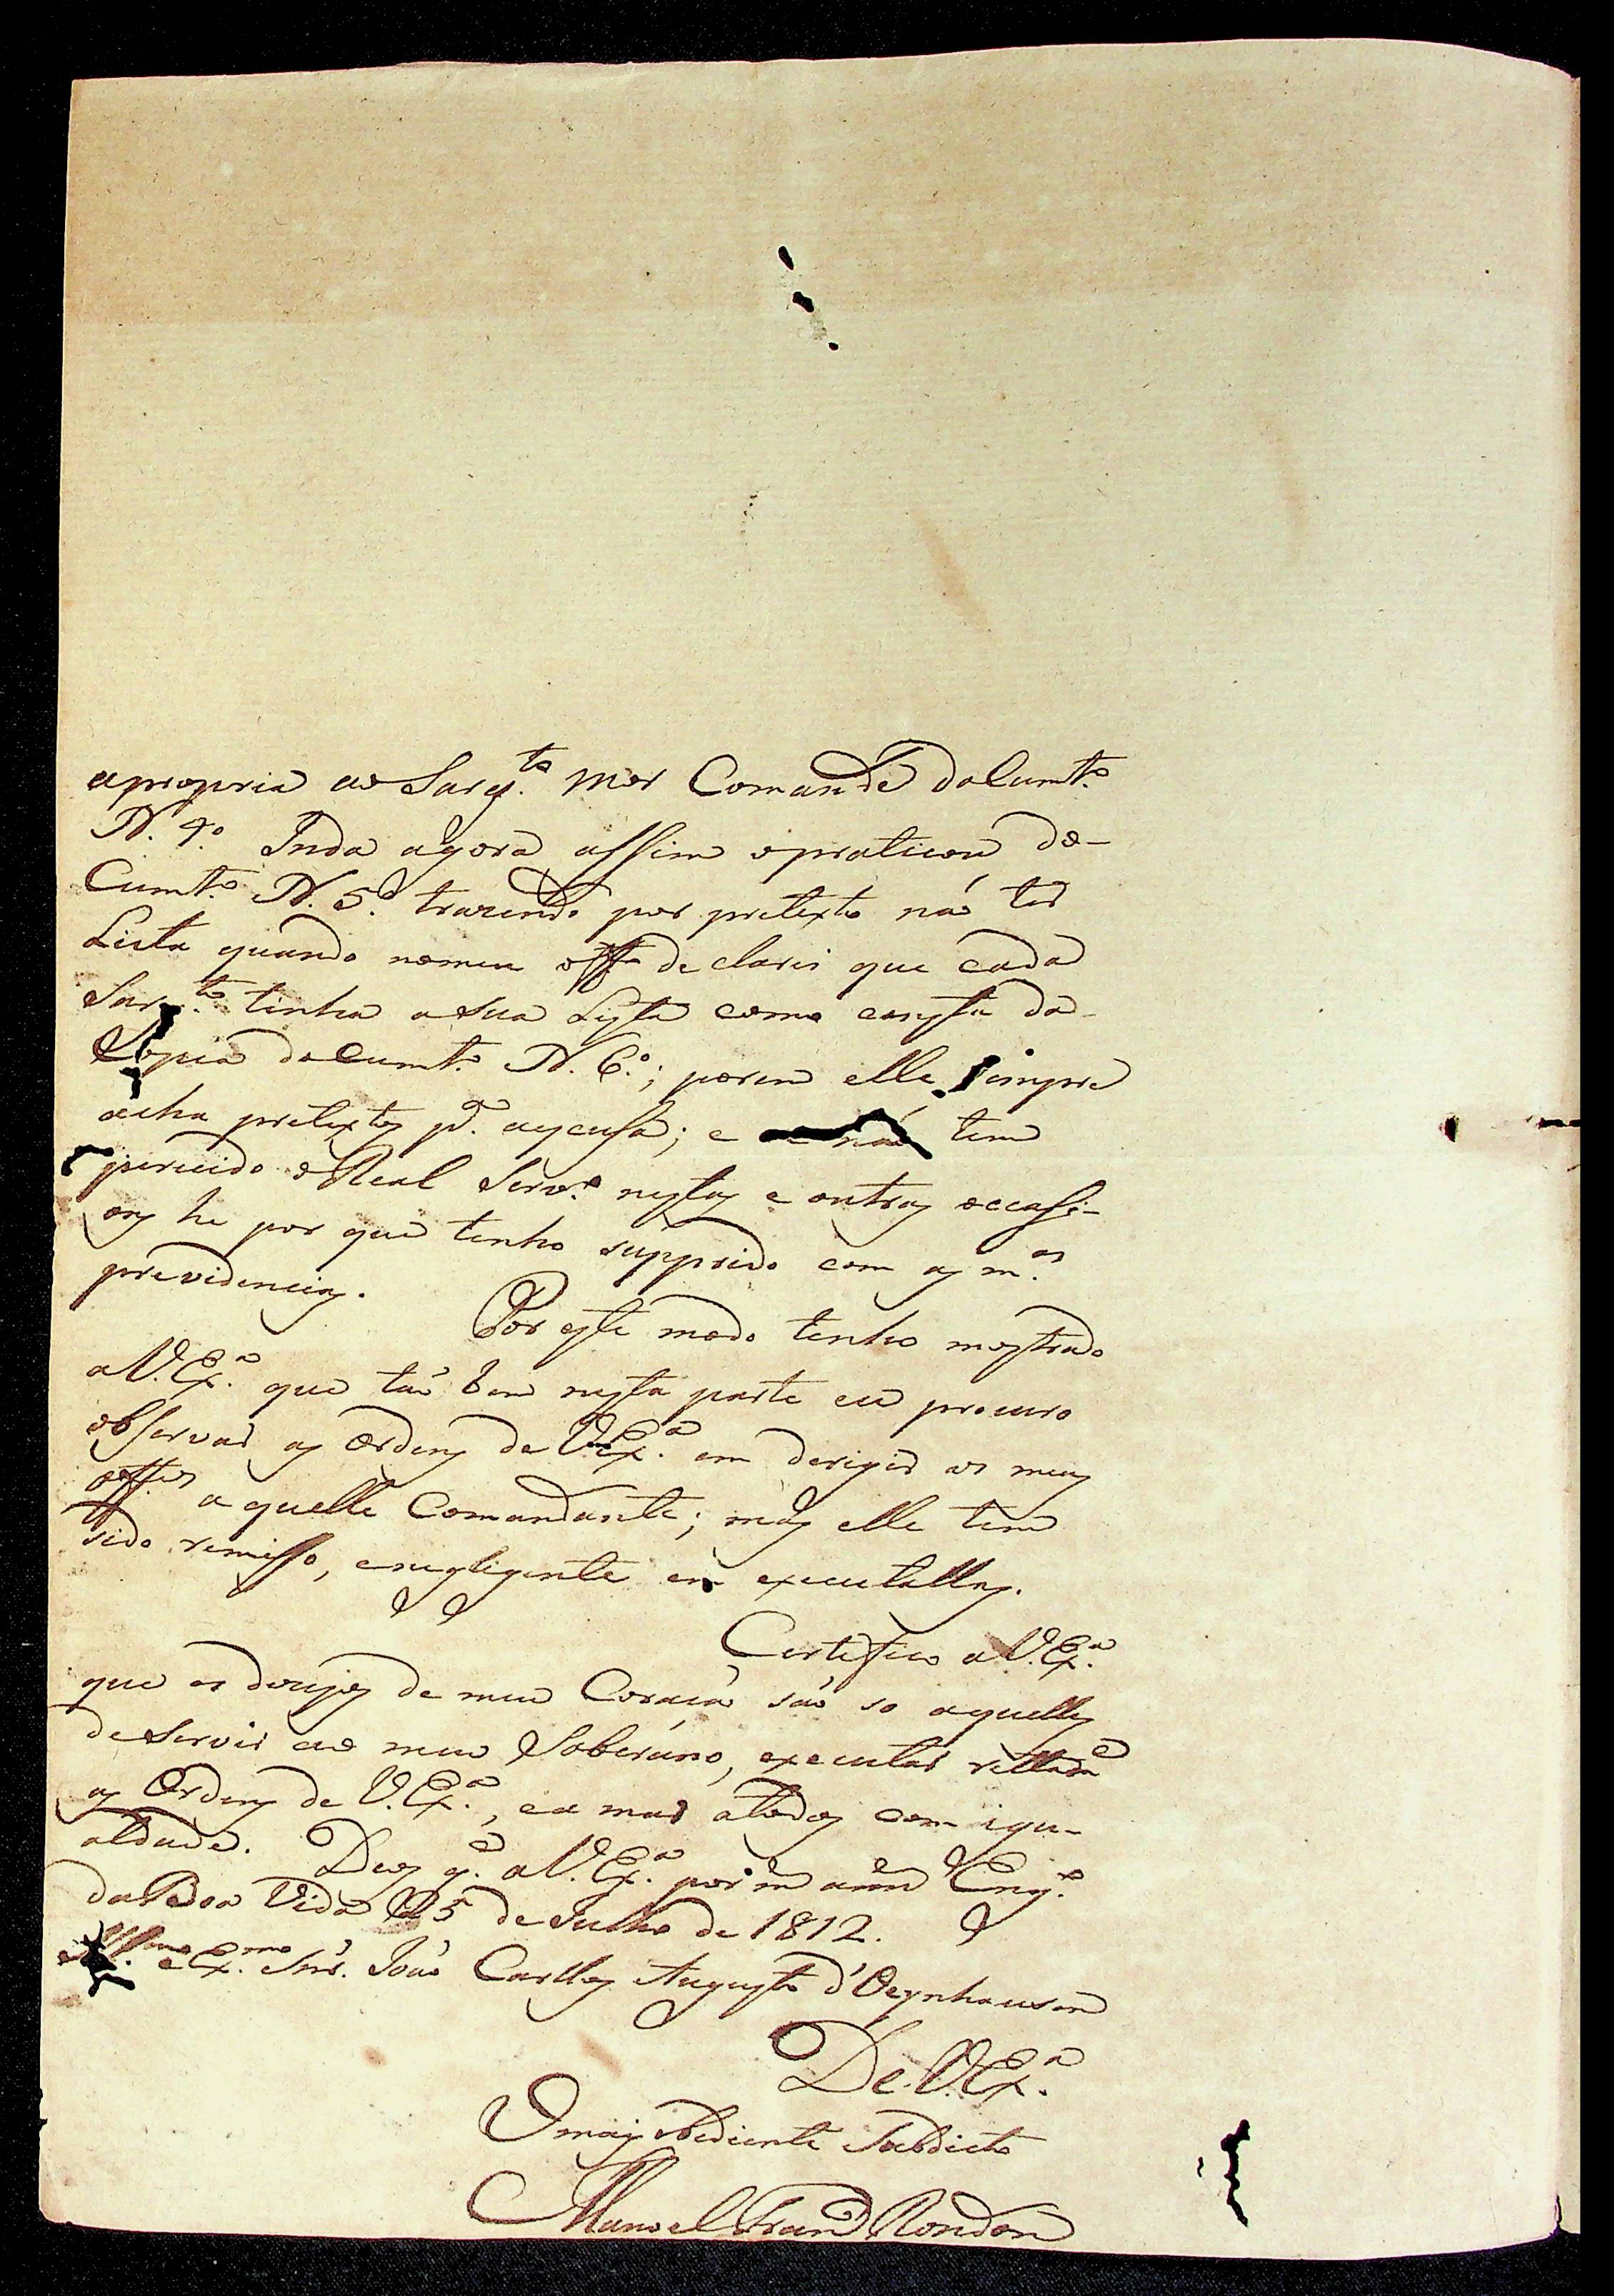 apropria ao Sarg.to Mor Comande docum.to
N. 4.o Inda agora assim opraticou do-
Cum.to N. 5.o trazendo por pretexto naõ ter
Lista quando nomeu off.o declarei que cada
Sarg.to tinha a sua Lista como consta da
Copia docum.to N. 6.o; porem elle sempre
acha pretextos p.a ; e naõ tem
perecido o Real Serv.o nestas e outras occasi-
oins he por que tenho supprido com as m.as
previdencias. Por este modo tenho mostrado
a V. Ex.a que taõ bem nesta parte eu procuro
observar as Ordens de V. Ex.a em derigir os meus
off.ios a quelle Comandante; mas elle tem
sido remisso, enegligente em executallas.
Certefico a V. Ex.a
que os dezejos de meu Coraçaõ saõ so aquelles
de Servir ao meu Soberano, executar rettam.e
as Ordens de V. Ex.a, ea mar atodos com igu-
aldade. Deos g.e a V. Ex.a por m.s ann.s Eng.o
da Boa Vida 25 de Julho de 1812.
Ill.mo e Ex.mo Snr. Joaõ Carllos Augusto d'Oeynhausen
De V. Ex.a
O mais obediente Subdicto
Manoel Fran.co Rondon